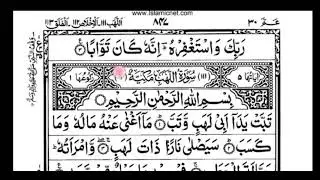 www.Islamicnet.com
عـم ٣٠
٨٣٧
اللهب ١١١ الاخلاص ١١٢ الفلق ١١٣
رَبِّكَ وَاسْتَغْفِرْهُ ؕ اِنَّهٗ كَانَ تَوَّابًا
سُوْرَةُ اللَّهَبِ مَكِّيَّةٌ
بِسْمِ اللّٰهِ الرَّحْمٰنِ الرَّحِيْمِ
تَبَّتْ يَدَاۤ اَبِيْ لَهَبٍ وَّتَبَّ ؕ مَاۤ اَغْنٰى عَنْهُ مَالُهٗ وَمَا
كَسَبَ ؕ سَيَصْلٰى نَارًا ذَاتَ لَهَبٍ ۖ وَّامْرَاَتُهٗ ؕ